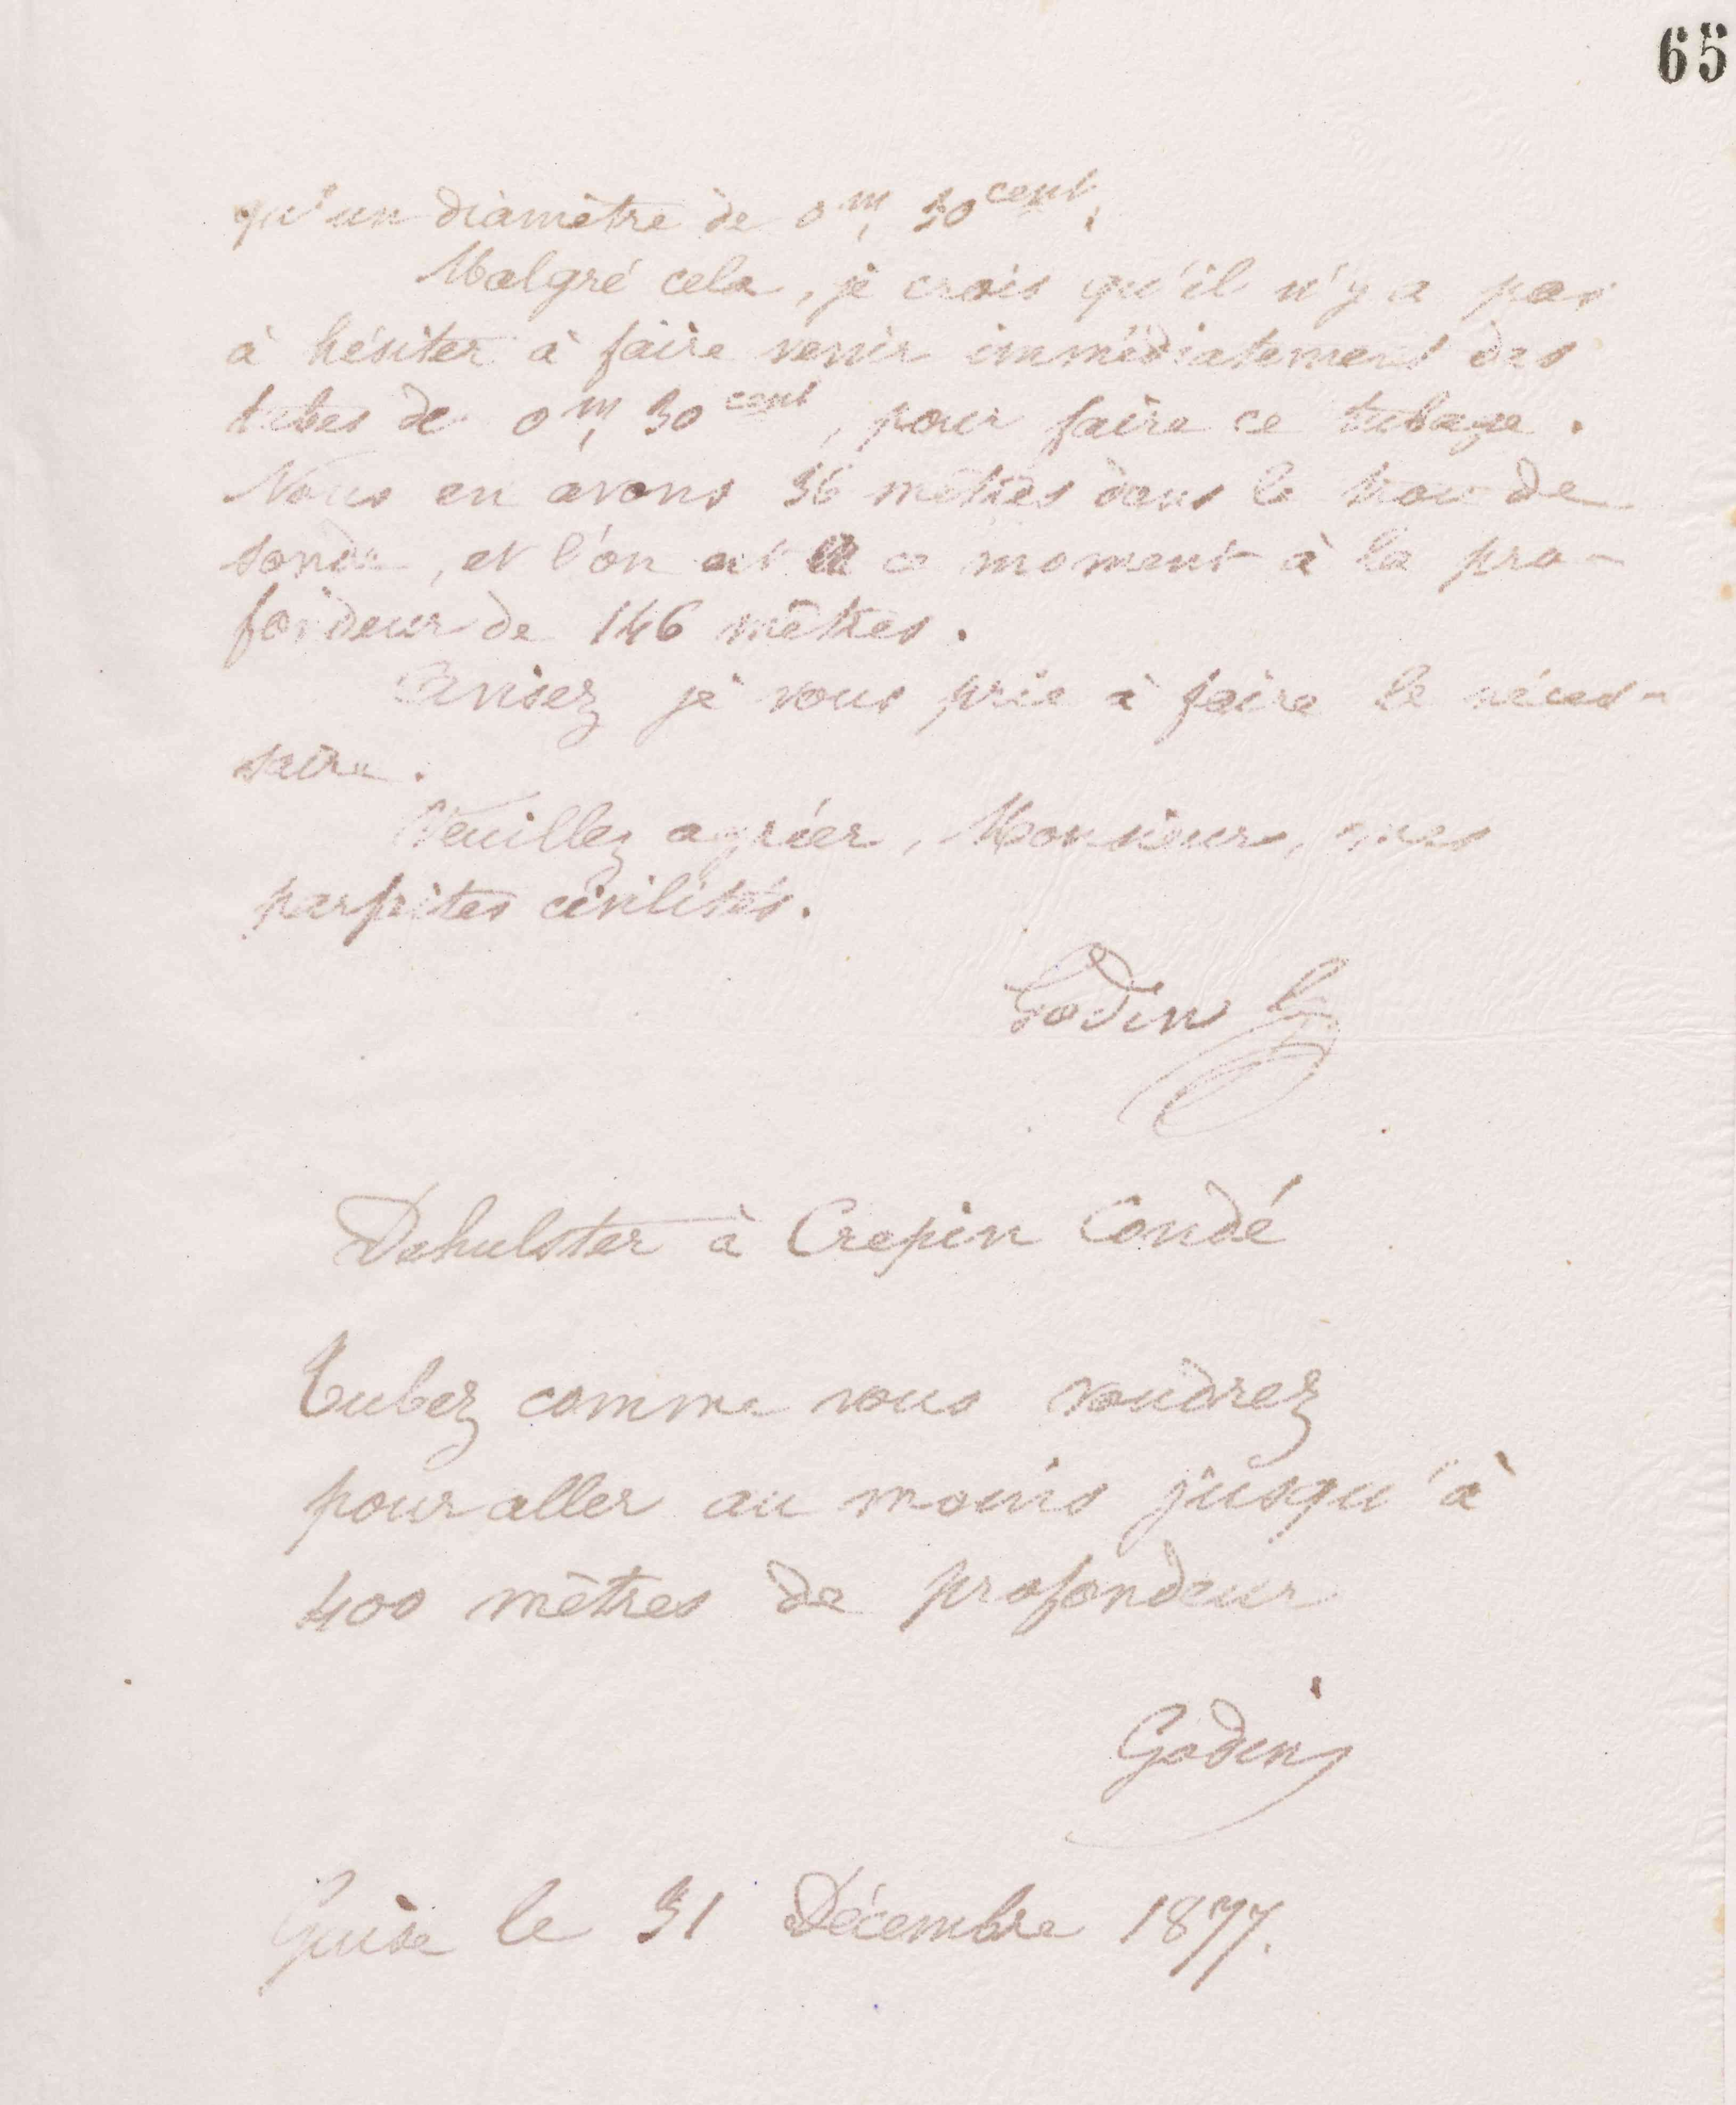 65
qu'un diamètre de 0m, 30cent.
Malgré cela, je crois qu'il n'y a pas
à hésiter à faire venir immédiatement des
tubes de 0m, 30cent, pour faire ce tubage.
Nous en avons 36 mètres dans le trou de
sonde, et l'on est ce moment à la pro-
fondeur de 146 mètres.
Avisez je vous prie à faire le néces-
saire.
Veuillez agréer, Monsieur, mes
parfaites civilités.
Godin
Dehulster à Crepin Condé
Tubez comme vous voudrez
pour aller au moins jusqu'à
400 mètres de profondeur
Godin
Guise le 31 Décembre 1877.